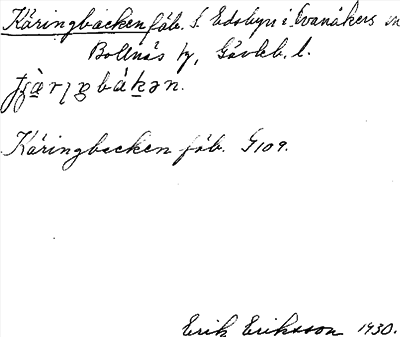 Käringbacken fäb. S. Edsbyn i Svanåkers
Bollnäs tg, Gävleb. l.
Käringbacken fäb. G109.
Erik Eriksson 1930.